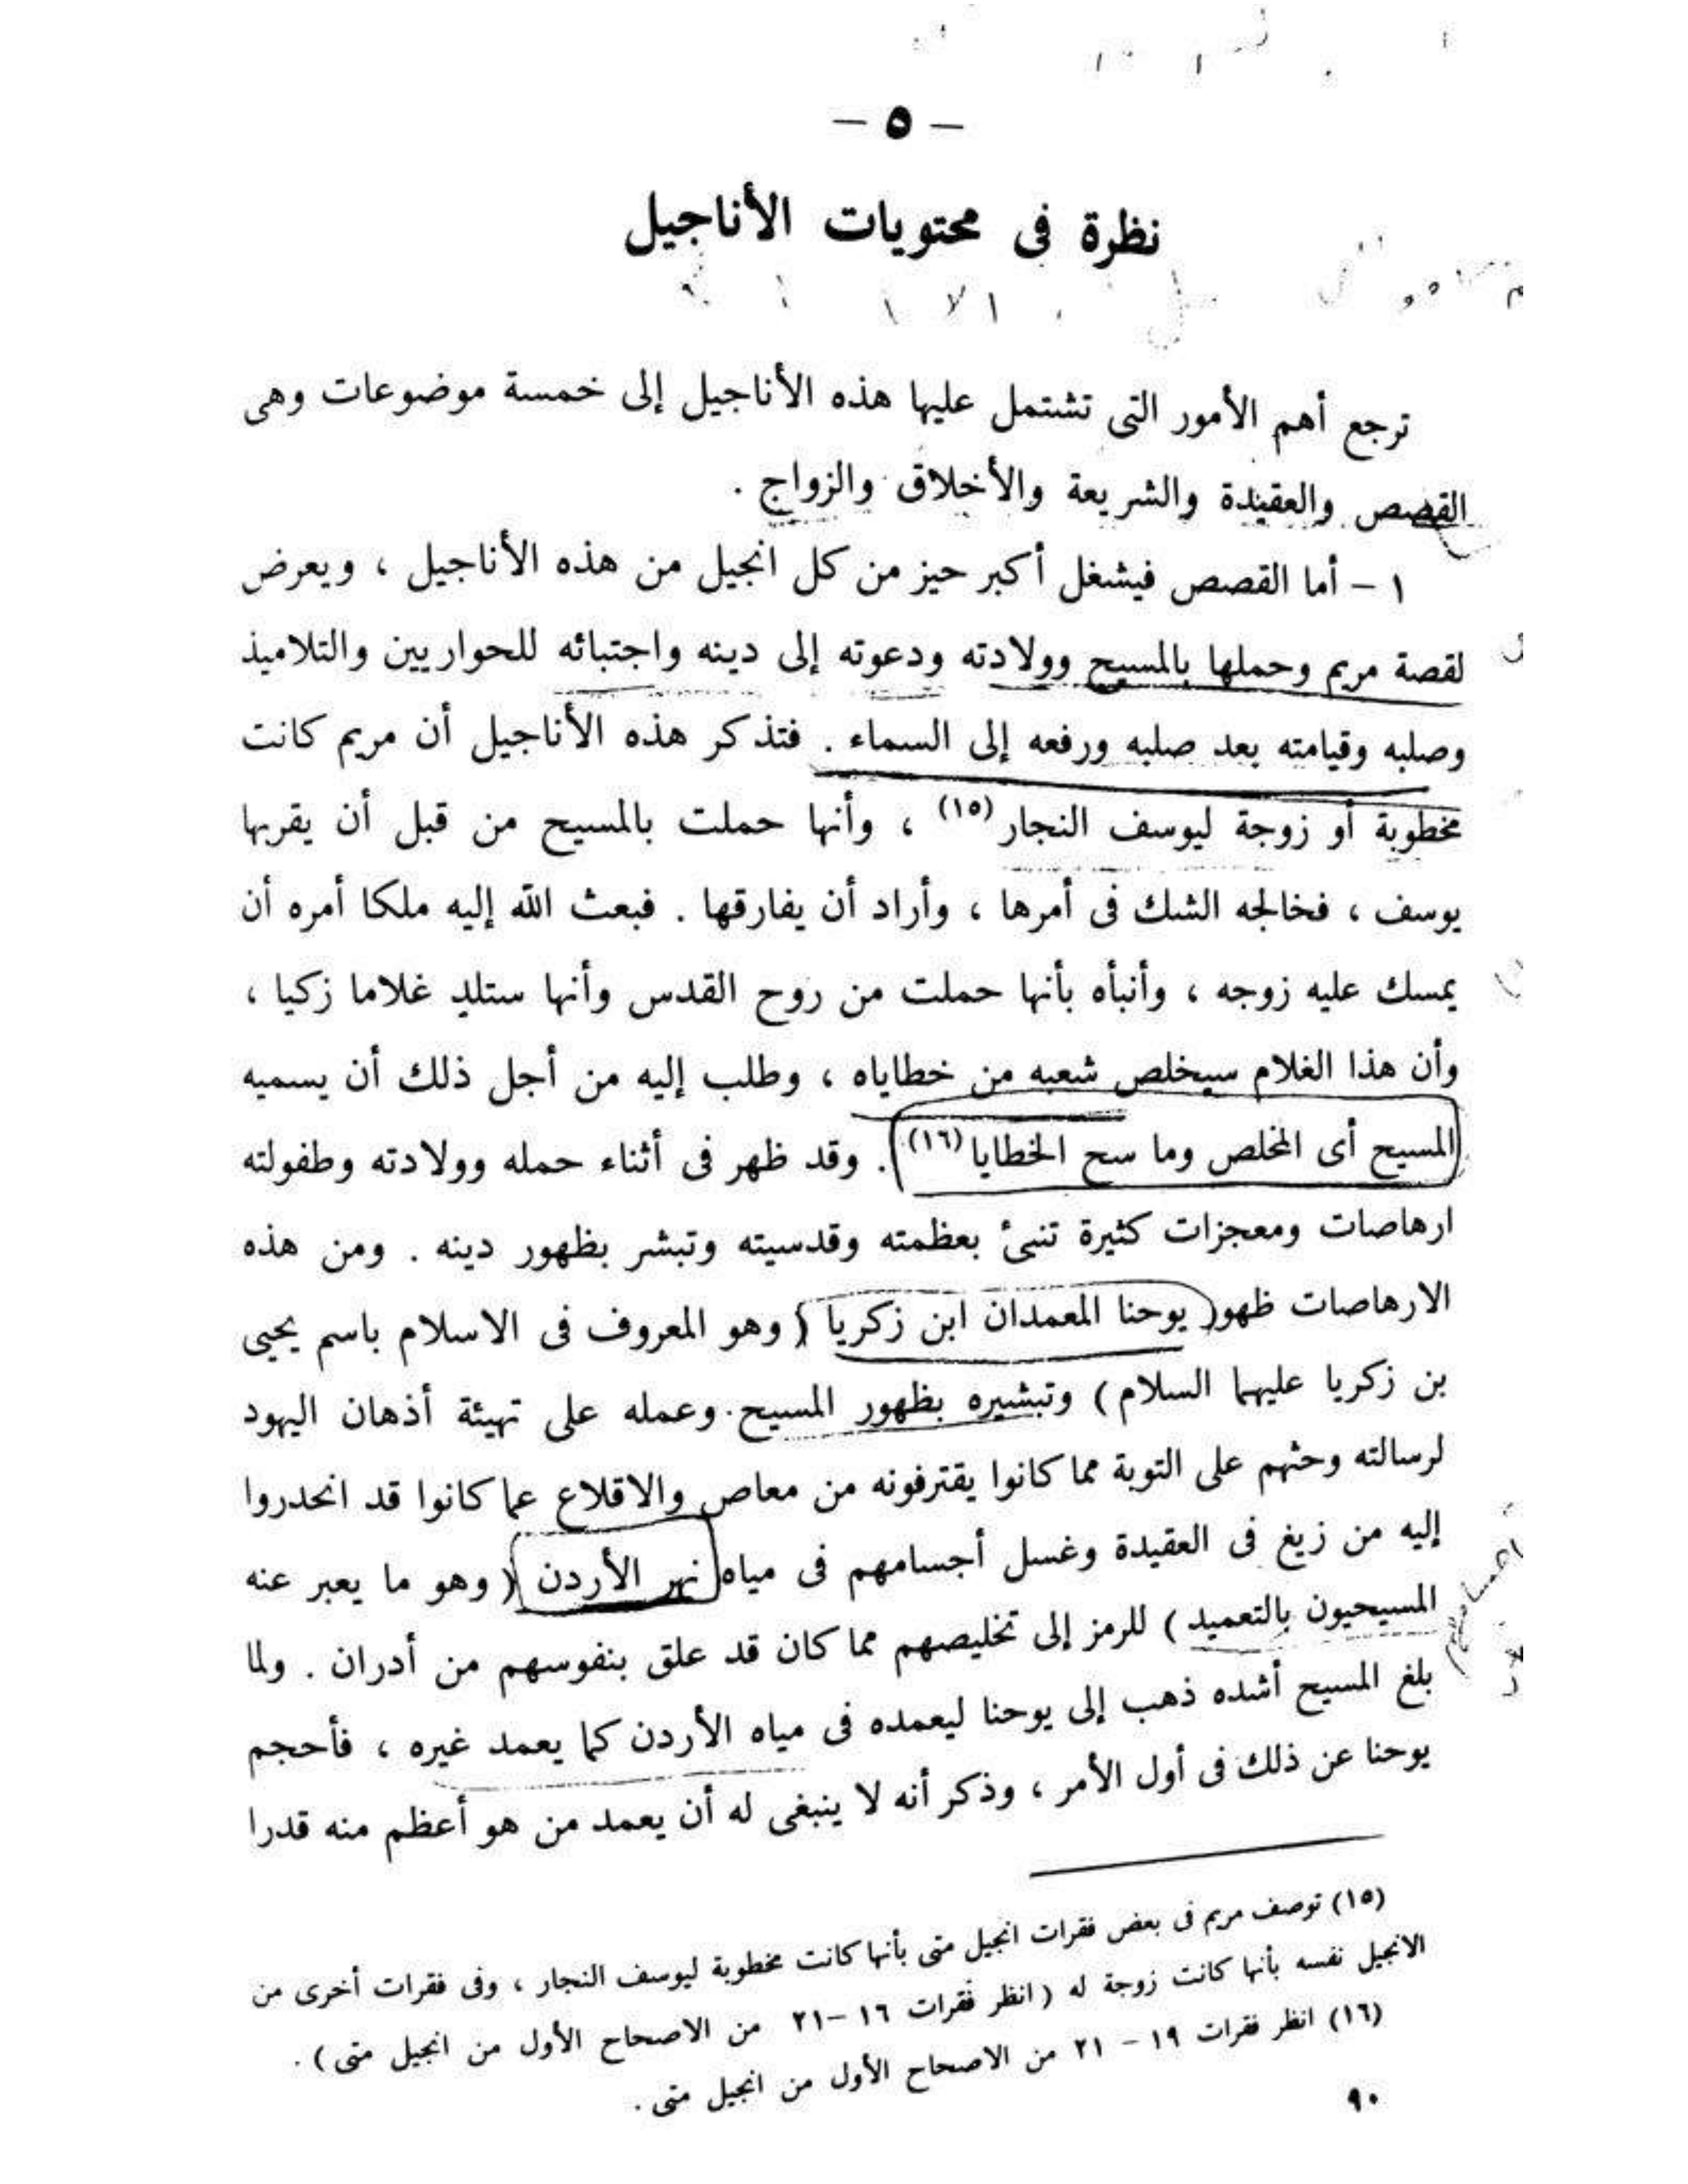 - ٥ -
نظرة فى محتويات الأناجيل
ترجع أهم الأمور التى تشتمل عليها هذه الأناجيل إلى خمسة موضوعات وهى
القصص والعقيدة والشريعة والأخلاق والزواج .
١ - أما القصص فيشغل أكبر حيز من كل انجيل من هذه الأناجيل ، ويعرض
لقصة مريم وحملها بالمسيح وولادته ودعوته إلى دينه واجتبائه للحواريين والتلاميذ
وصلبه وقيامته بعد صلبه ورفعه إلى السماء . فتذكر هذه الأناجيل أن مريم كانت
مخطوبة أو زوجة ليوسف النجار (١٥) ، وأنها حملت بالمسيح من قبل أن يقربها
يوسف ، فخالجه الشك فى أمرها ، وأراد أن يفارقها . فبعث الله إليه ملكا أمره أن
يمسك عليه زوجه ، وأنبأه بأنها حملت من روح القدس وأنها ستلد غلاما زكيا ،
وأن هذا الغلام سيخلص شعبه من خطاياه ، وطلب إليه من أجل ذلك أن يسميه
المسيح أى المخلص وما سح الخطايا (١٦) . وقد ظهر فى أثناء حمله وولادته وطفولته
ارهاصات ومعجزات كثيرة تنبئ بعظمته وقدسيته وتبشر بظهور دينه . ومن هذه
الارهاصات ظهور يوحنا المعمدان ابن زكريا ( وهو المعروف فى الاسلام باسم يحيى
بن زكريا عليهما السلام ) وتبشيره بظهور المسيح وعمله على تهيئة أذهان اليهود
لرسالته وحثهم على التوبة مما كانوا يقترفونه من معاص والاقلاع عما كانوا قد انحدروا
إليه من زيغ فى العقيدة وغسل أجسامهم فى مياه نهر الأردن ( وهو ما يعبر عنه
المسيحيون بالتعميد ) للرمز إلى تخليصهم مما كان قد علق بنفوسهم من أدران . ولما
بلغ المسيح أشده ذهب إلى يوحنا ليعمده فى مياه الأردن كما يعمد غيره ، فأحجم
يوحنا عن ذلك فى أول الأمر ، وذكر أنه لا ينبغى له أن يعمد من هو أعظم منه قدرا
(١٥) توصف مريم فى بعض فقرات انجيل متى بأنها كانت مخطوبة ليوسف النجار ، وفى فقرات أخرى من
الانجيل نفسه بأنها كانت زوجة له ( انظر فقرات ١٦ -٢١ من الاصحاح الأول من انجيل متى ) .
(١٦) انظر فقرات ١٩ - ٢١ من الاصحاح الأول من انجيل متى .
٩٠